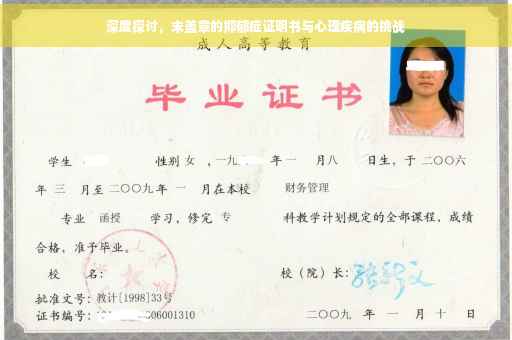 深度探讨，未盖章的抑郁症证明书与心理疾病的挑战
成人高等教育
毕业证书
学生 性别 女 ，一九 年 一 月八 日生，于 二〇〇六
年 三 月至 二〇〇九 年 一 月在本校 财务管理
专业 函授 学习，修完 专 科教学计划规定的全部课程，成绩
合格，准予毕业。
校 名： 校（院）长：
批准文号：教计[1998]33号
证书编号： 06001310 二〇〇九 年 一 月 十 日